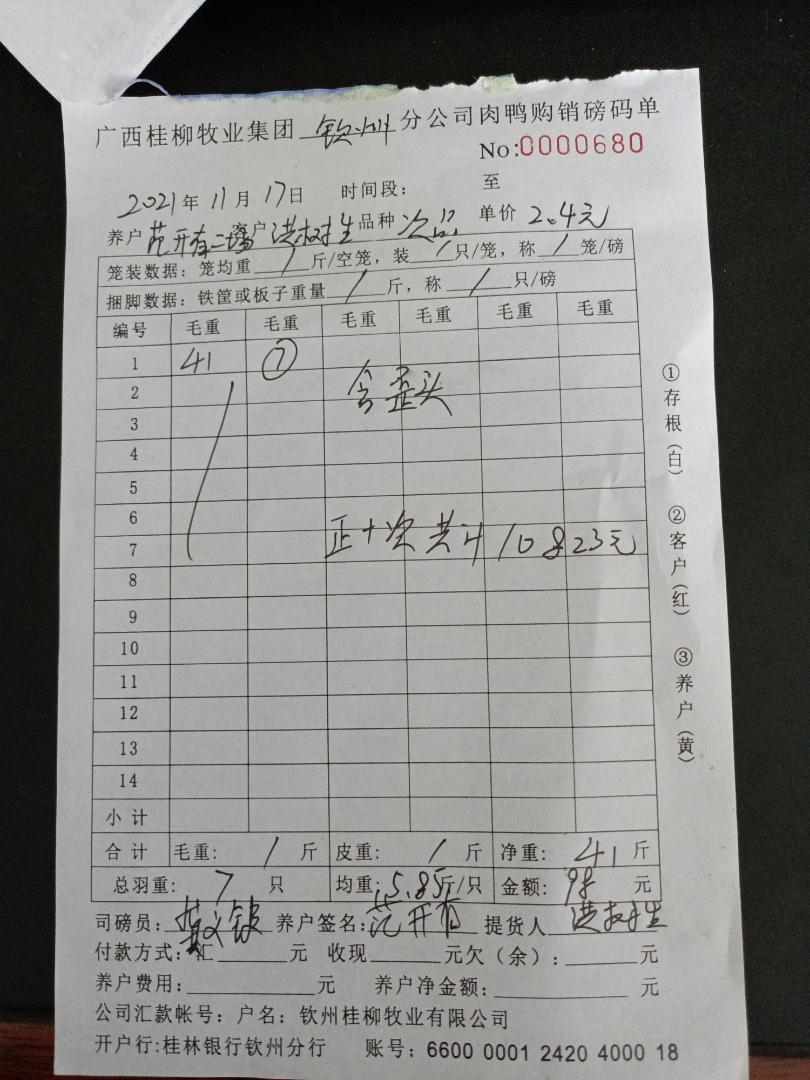 广西桂柳牧业集团 钦州 分公司肉鸭购销磅码单
No:0000680
2021年 11月 17日 时间段: 至
养户 范开有二场 客户 洪树生 品种 次品 单价 2.4元
笼装数据:笼均重 / 斤/空笼,装 / 只/笼,称 / 笼/磅
捆脚数据:铁筐或板子重量 / 斤,称 / 只/磅
编号 毛重 毛重 毛重 毛重 毛重 毛重
1 41 ⑦
2 含歪头
3
4
5
6
7 正+次共计10823元
8
9
10
11
12
13
14
小计
合计 毛重: / 斤 皮重: / 斤 净重: 41 斤
总羽重: 7 只 均重: 5.85斤/只 金额: 98 元
司磅员: 养户签名: 范开有 提货人 洪树生
付款方式:汇 元 收现 元欠(余): 元
养户费用: 元 养户净金额: 元
公司汇款帐号:户名:钦州桂柳牧业有限公司
开户行:桂林银行钦州分行 账号:6600 0001 2420 4000 18
①存根(白) ②客户(红) ③养户(黄)